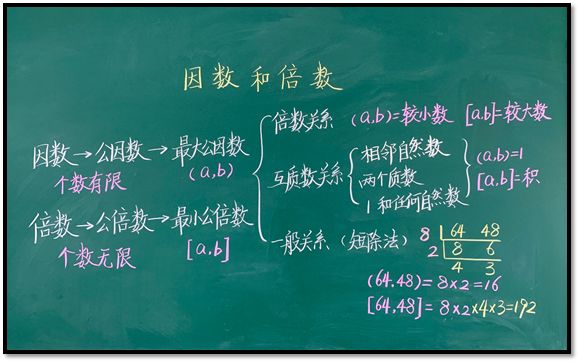 因数和倍数
因数→公因数→最大公因数
个数有限
(a,b)
倍数→公倍数→最小公倍数
个数无限
[a,b]
倍数关系 (a,b)=较小数 [a,b]=较大数
互质数关系
相邻自然数
两个质数
1和任何自然数
(a,b)=1
[a,b]=积
一般关系(短除法)
8 64 48
2 8 6
4 3
(64,48)=8×2=16
[64,48]=8×2×4×3=192